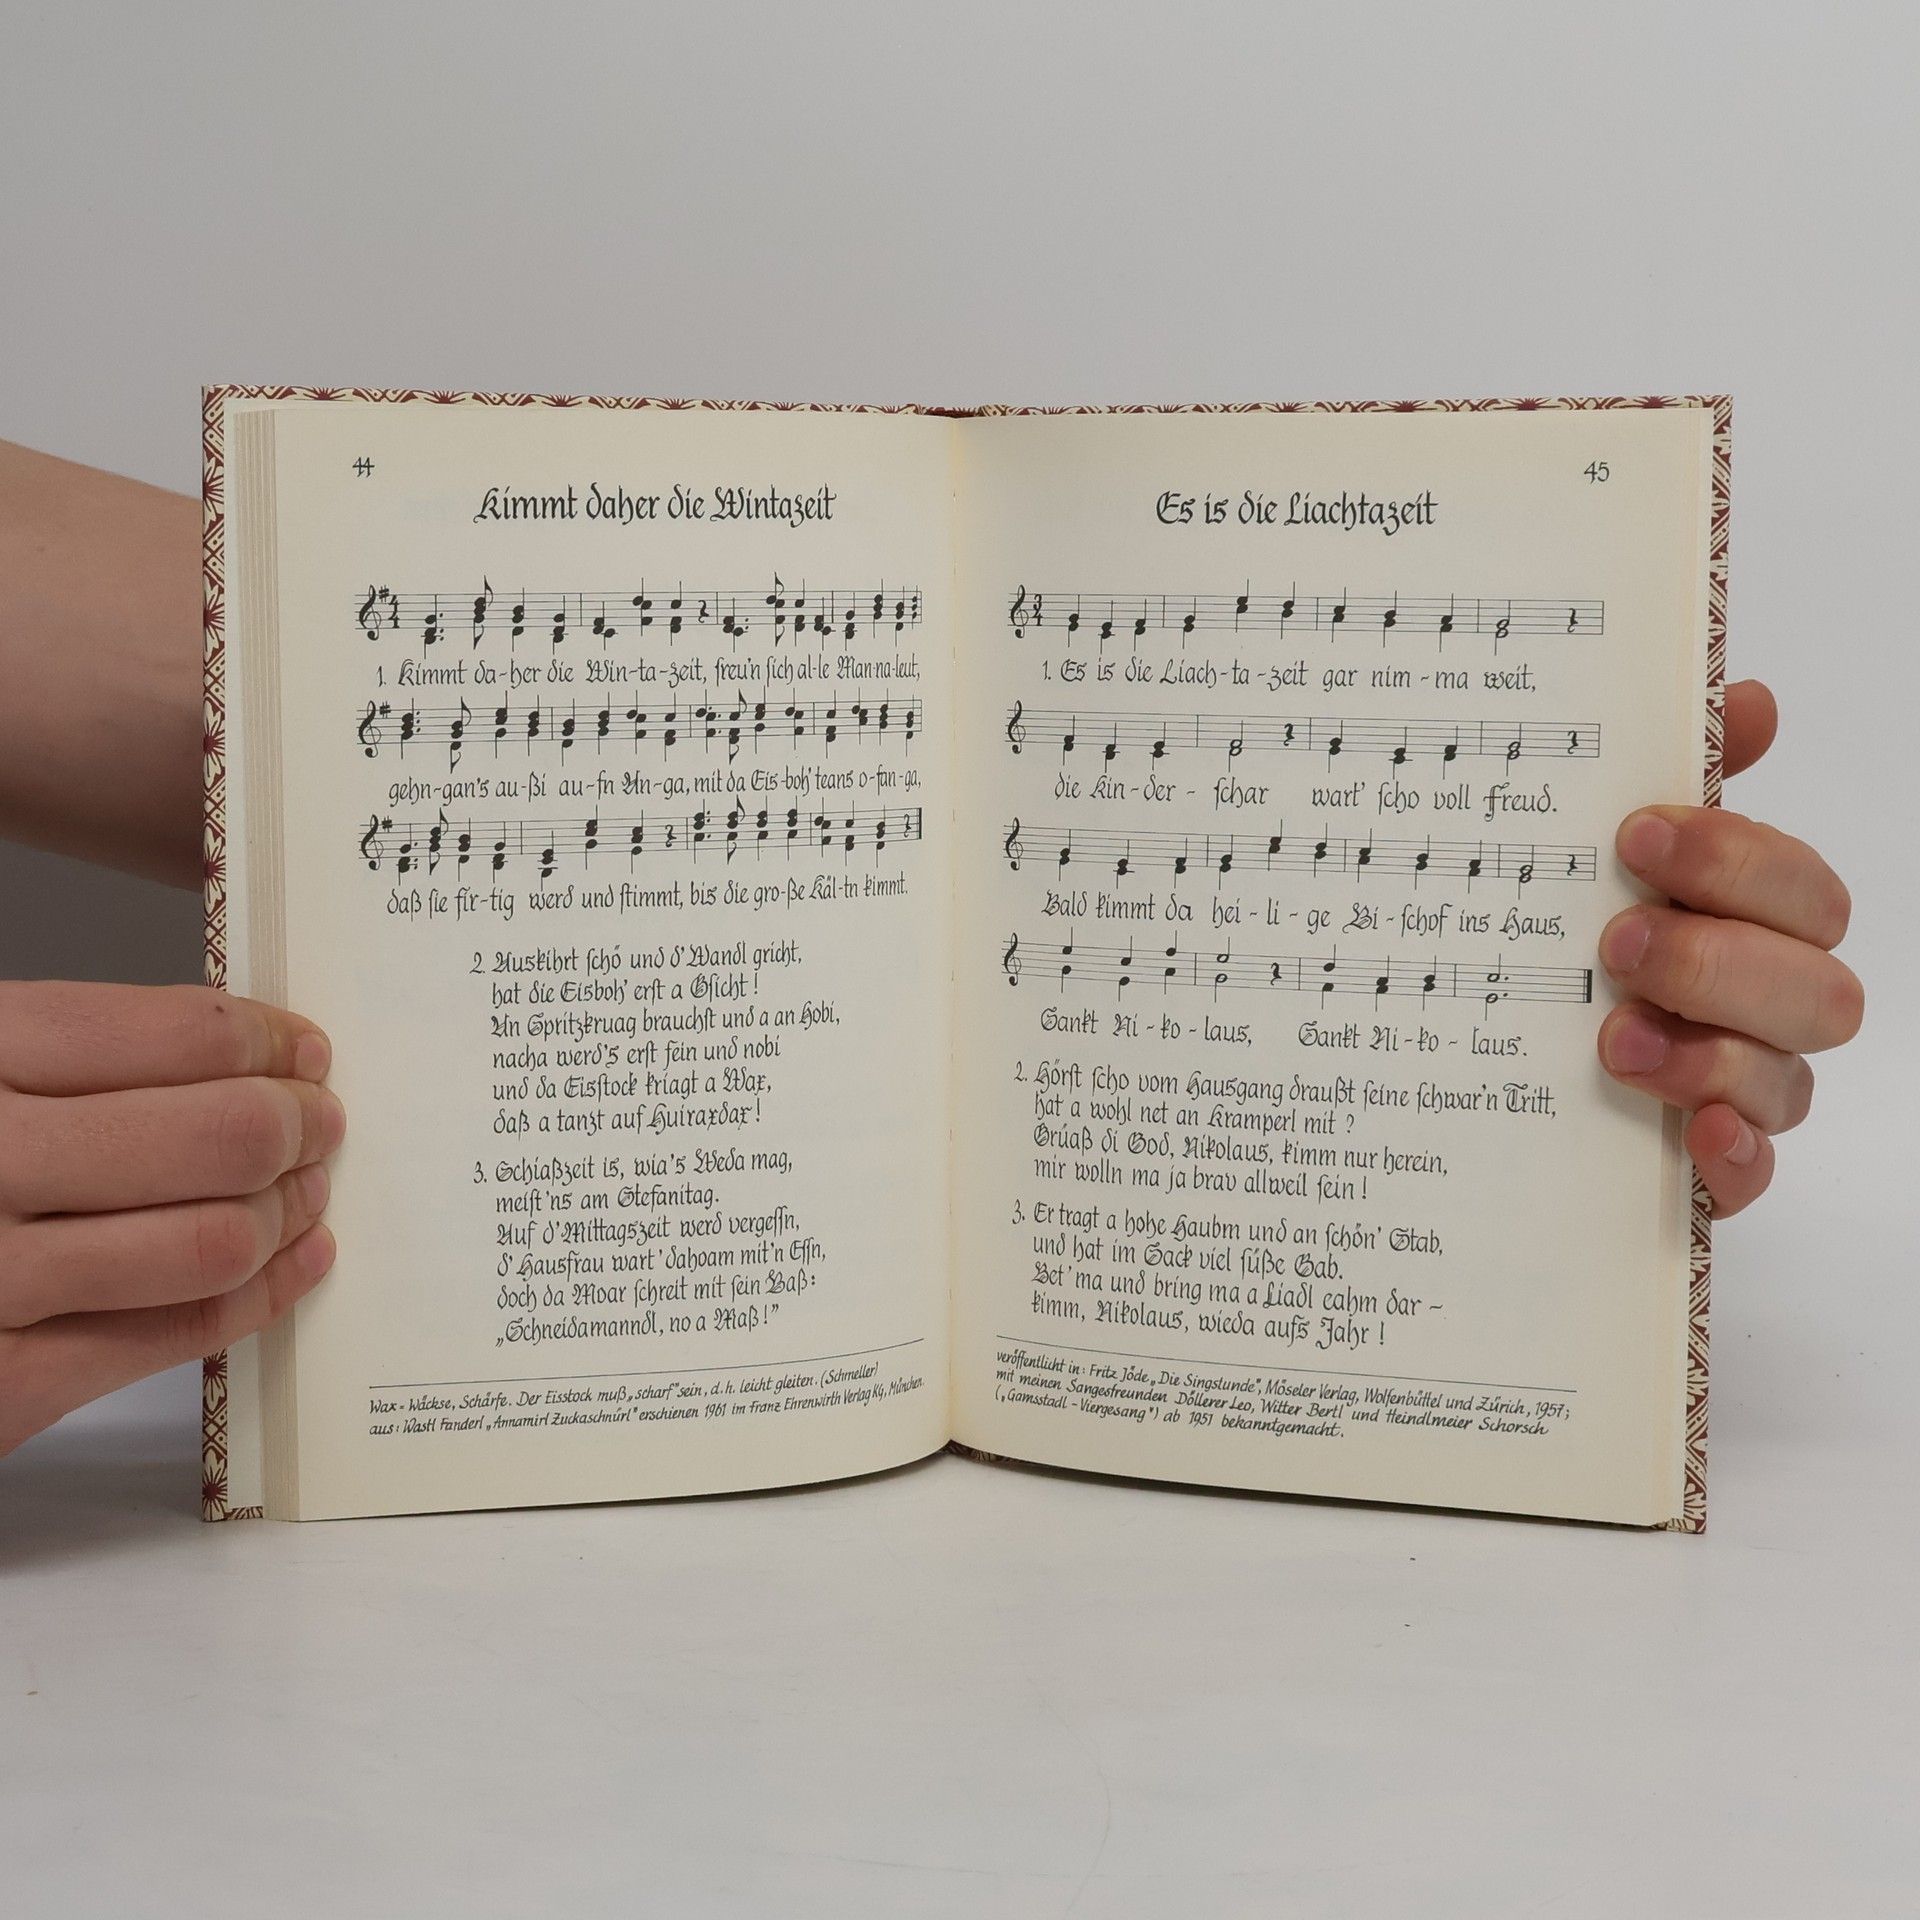 44
Kimmt daher die Wintazeit
1. Kimmt da-her die Win-ta-zeit, freu'n sich al-le Man-na-leut,
gehn-gan's au-ßi au-fn An-ga, mit da Eis-boh' teans o-fan-ga,
daß sie fir-tig werd und stimmt, bis die gro-ße Käl-tn kimmt.
2. Auskihrt schö und d'Wandl gricht,
hat die Eisboh' erst a Gsicht!
An Spritzkruag brauchst und a an Hobi,
nacha werd's erst fein und nobi
und da Eisstock kriagt a Wax,
daß a tanzt auf Huiraxdax!
3. Schiaßzeit is, wia's Weda mag,
meist'ns am Stefanitag.
Auf d'Mittagszeit werd vergessn,
d'Hausfrau wart' dahoam mit'n Essn,
doch da Moar schreit mit sein Baß:
„Schneidamanndl, no a Maß!"
Wax = Wäckse, Schärfe. Der Eisstock muß „scharf" sein, d.h. leicht gleiten. (Schmeller)
aus: Wastl Fanderl „Annamirl Zuckaschnürl" erschienen 1961 im Franz Ehrenwirth Verlag KG, München.
45
Es is die Liachtazeit
1. Es is die Liach-ta-zeit gar nim-ma weit,
die Kin-der-schar wart' scho voll Freud.
Bald kimmt da hei-li-ge Bi-schof ins Haus,
Sankt Ni-ko-laus, Sankt Ni-ko-laus.
2. Hörst scho vom Hausgang draußt seine schwar'n Tritt,
hat a wohl net an Kramperl mit?
Grüaß di God, Nikolaus, kimm nur herein,
mir wolln ma ja brav allweil sein!
3. Er tragt a hohe Haubm und an schön' Stab,
und hat im Sack viel süße Gab.
Bet' ma und bring ma a Liadl eahm dar ~
kimm, Nikolaus, wieda aufs Jahr!
veröffentlicht in: Fritz Jöde „Die Singstunde", Möseler Verlag, Wolfenbüttel und Zürich, 1957;
mit meinen Sangesfreunden Döllerer Leo, Witter Bertl und Heindlmeier Schorsch
(„Gamsstadl-Viergesang") ab 1951 bekanntgemacht.